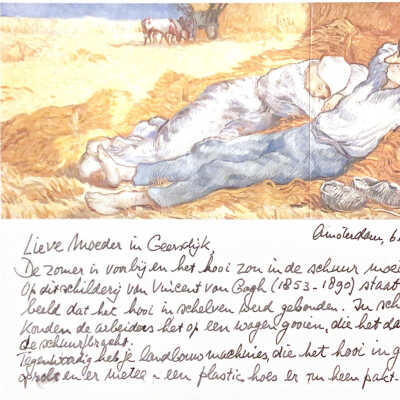 Amsterdam, 6
Lieve Moeder in Geersdijk,
De zomer is voorbij en het hooi zou in de schuur moe
Op dit schilderij van Vincent van Gogh (1853-1890) staat
beeld dat het hooi in schelven werd gebonden. In sch
konden de arbeiders het op een wagen gooien, die het da
de schuur bracht.
Tegenwoordig heb je landbouwmachines, die het hooi in g
oprolt en er meteen een plastic hoes er om heen pakt.